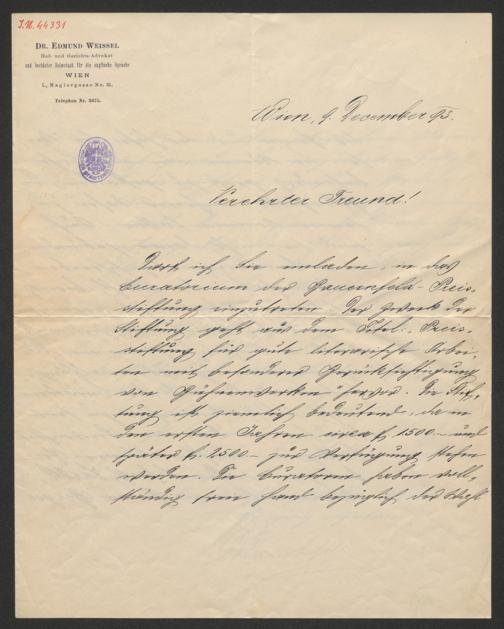 I.N. 44331
DR. EDMUND WEISSEL
Hof- und Gerichts-Advokat
und beeideter Dolmetsch für die englische Sprache
WIEN
I., Maglergasse Nr.
Telephon Nr. 3675.
Wien, 9. December 95.
Verehrter Freund!
Darf ich Sie einladen, in das
Curatorium der Bauernfeld-Preis-
stiftung einzutreten. Der Zweck der
Stiftung geht aus dem Titel „Preis-
stiftung für gute literarische Arbei-
ten mit besonderer Berücksichtigung
von Bühnenwerken" hervor. Die Stif-
tung ist ziemlich bedeutend, da in
den ersten Jahren circa f. 1500- und
später f. 2500- zur Verfügung stehen
werden. Die Curatoren haben voll-
ständig freie Hand bezüglich der Wahl